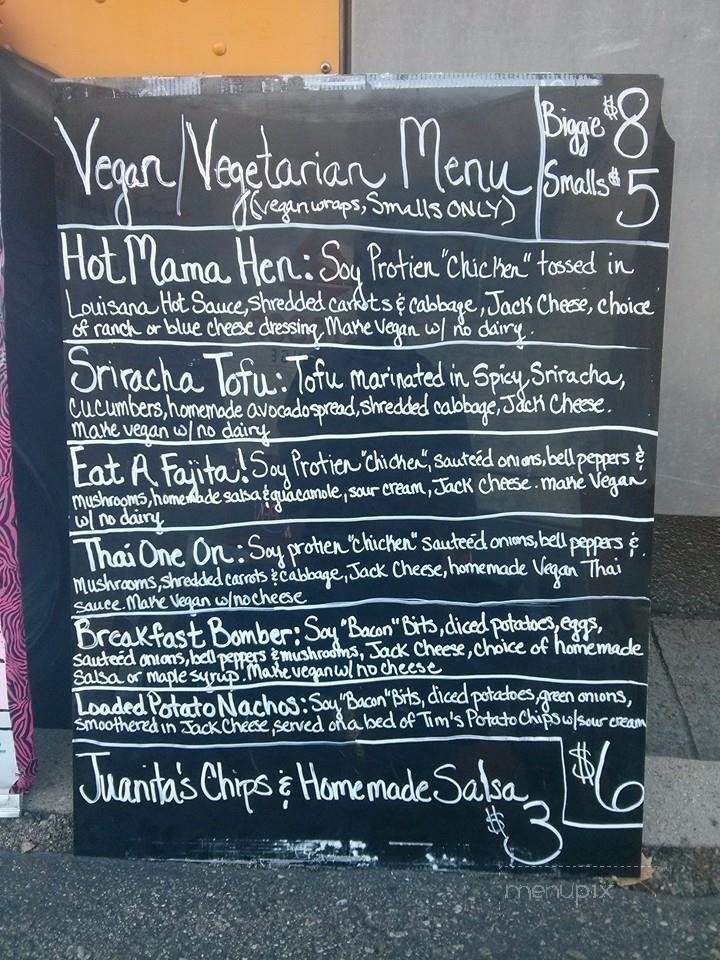 Vegan/Vegetarian Menu
(vegan wraps, Smalls ONLY)
Biggie $8
Smalls $5
Hot Mama Hen: Soy Protien "Chicken" tossed in
Louisana Hot Sauce, shredded carrots & cabbage, Jack Cheese, choice
of ranch or blue cheese dressing. Make Vegan w/ no dairy.
Sriracha Tofu: Tofu marinated in Spicy Sriracha,
cucumbers, homemade avocado spread, shredded cabbage, Jack Cheese.
Make vegan w/ no dairy
Eat A Fajita! Soy Protien "chicken", sauteéd onions, bell peppers &
mushrooms, homemade salsa & guacamole, sour cream, Jack Cheese. make Vegan
w/ no dairy
Thai One On: Soy protien "chicken" sauteéd onions, bell peppers &
mushrooms, shredded carrots & cabbage, Jack Cheese, homemade Vegan Thai
sauce. Make Vegan w/ no cheese
Breakfast Bomber: Soy "Bacon" Bits, diced potatoes, eggs,
sauteéd onions, bell peppers & mushrooms, Jack Cheese, choice of homemade
Salsa or maple syrup. Make vegan w/ no cheese
Loaded Potato Nachos: Soy "Bacon" Bits, diced potatoes, green onions,
smoothered in Jack Cheese, served on a bed of Tim's Potato Chips w/ sour cream
$6
Juanita's Chips & Homemade Salsa
$3
menupix